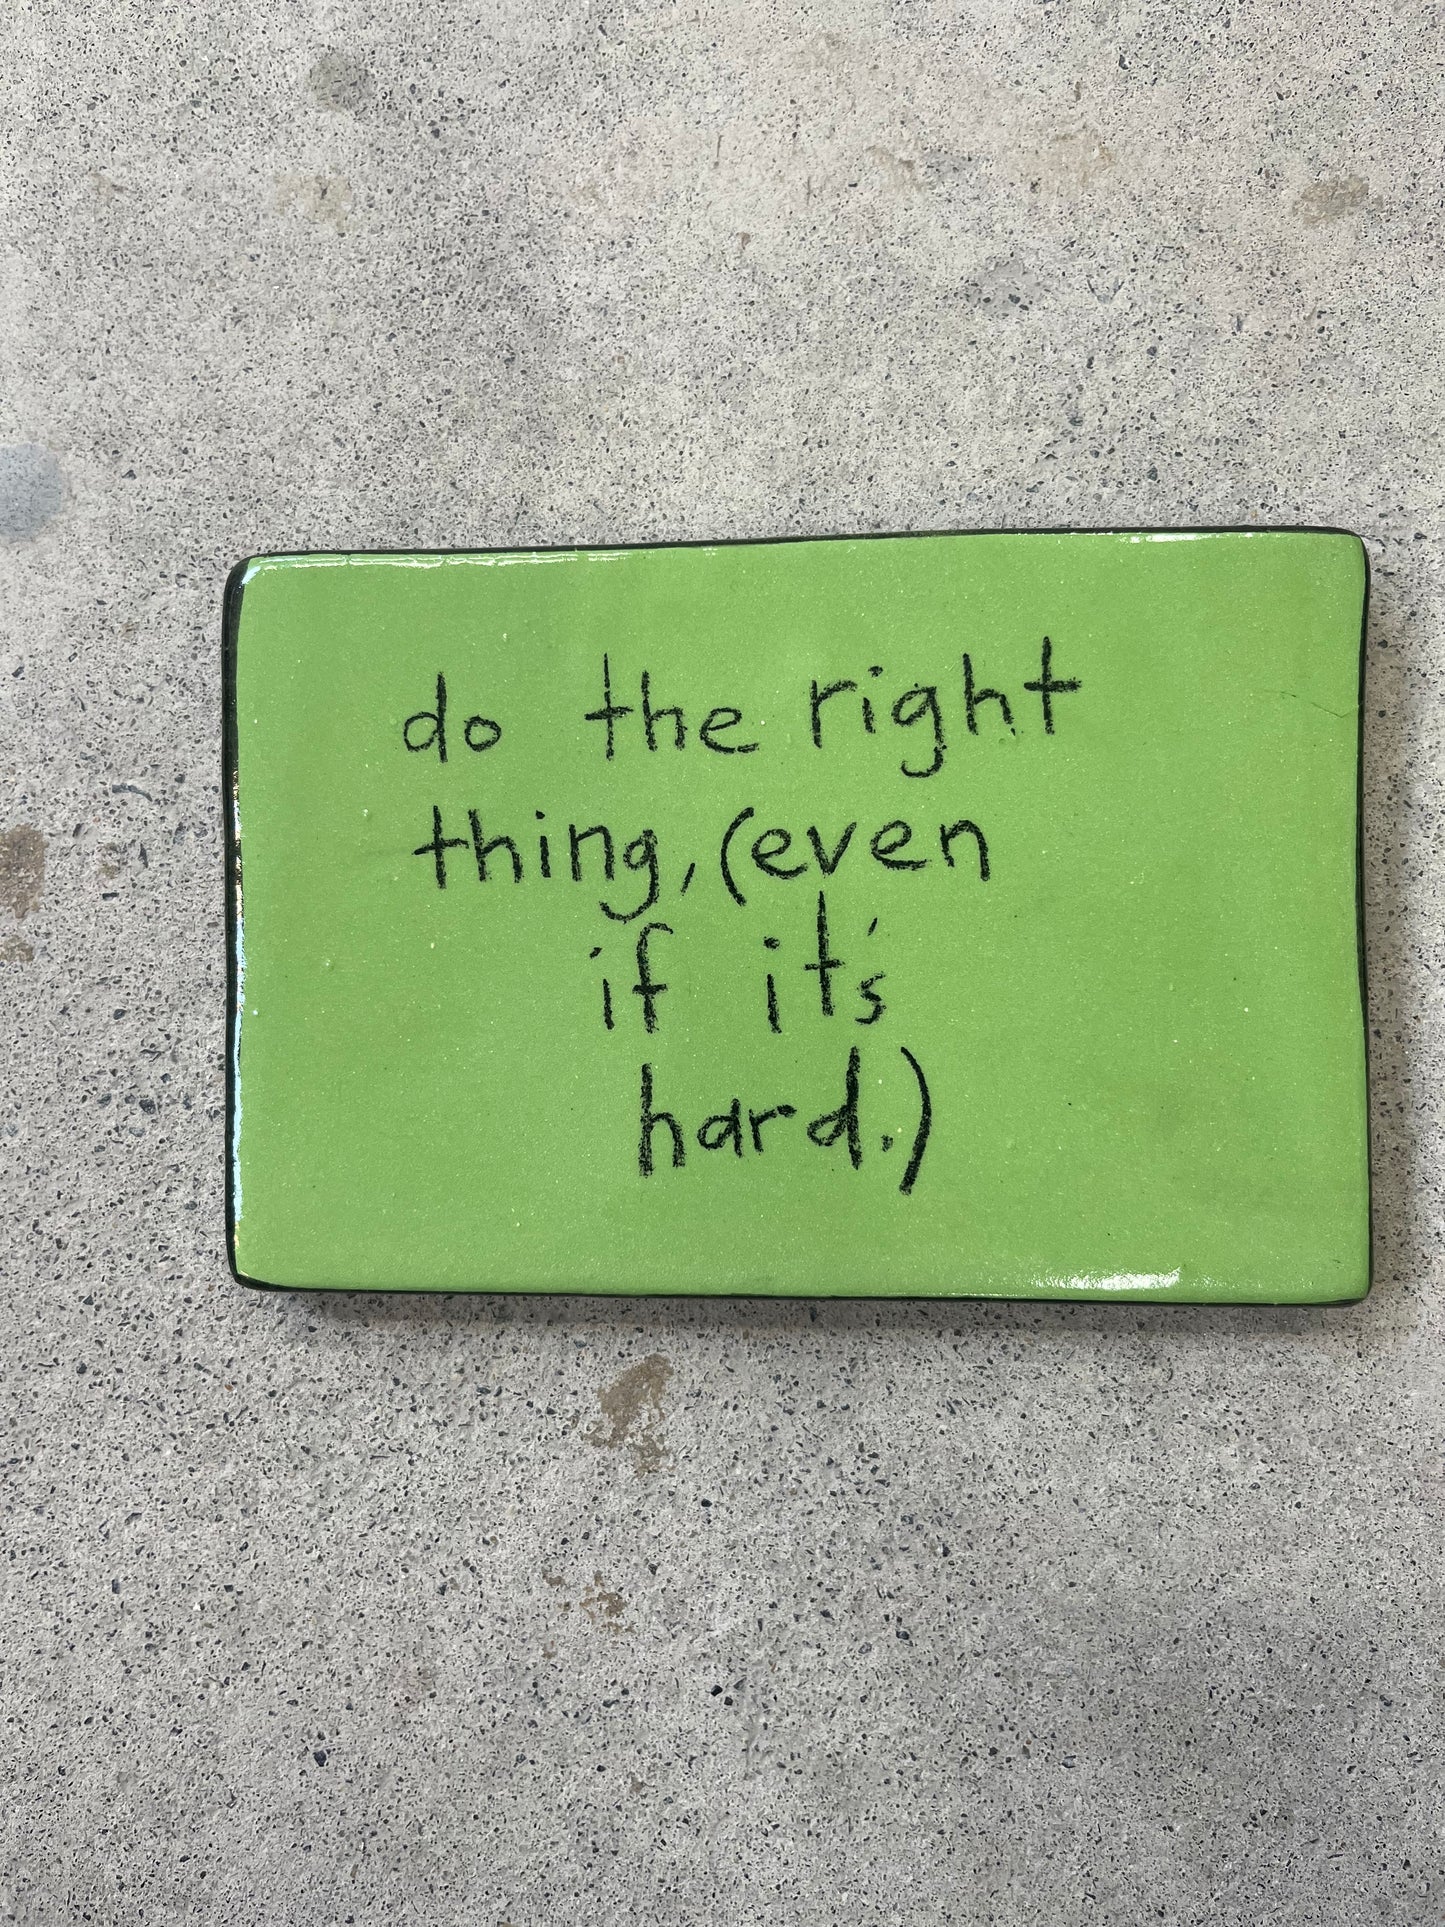 do the right
thing, (even
if it's
hard.)